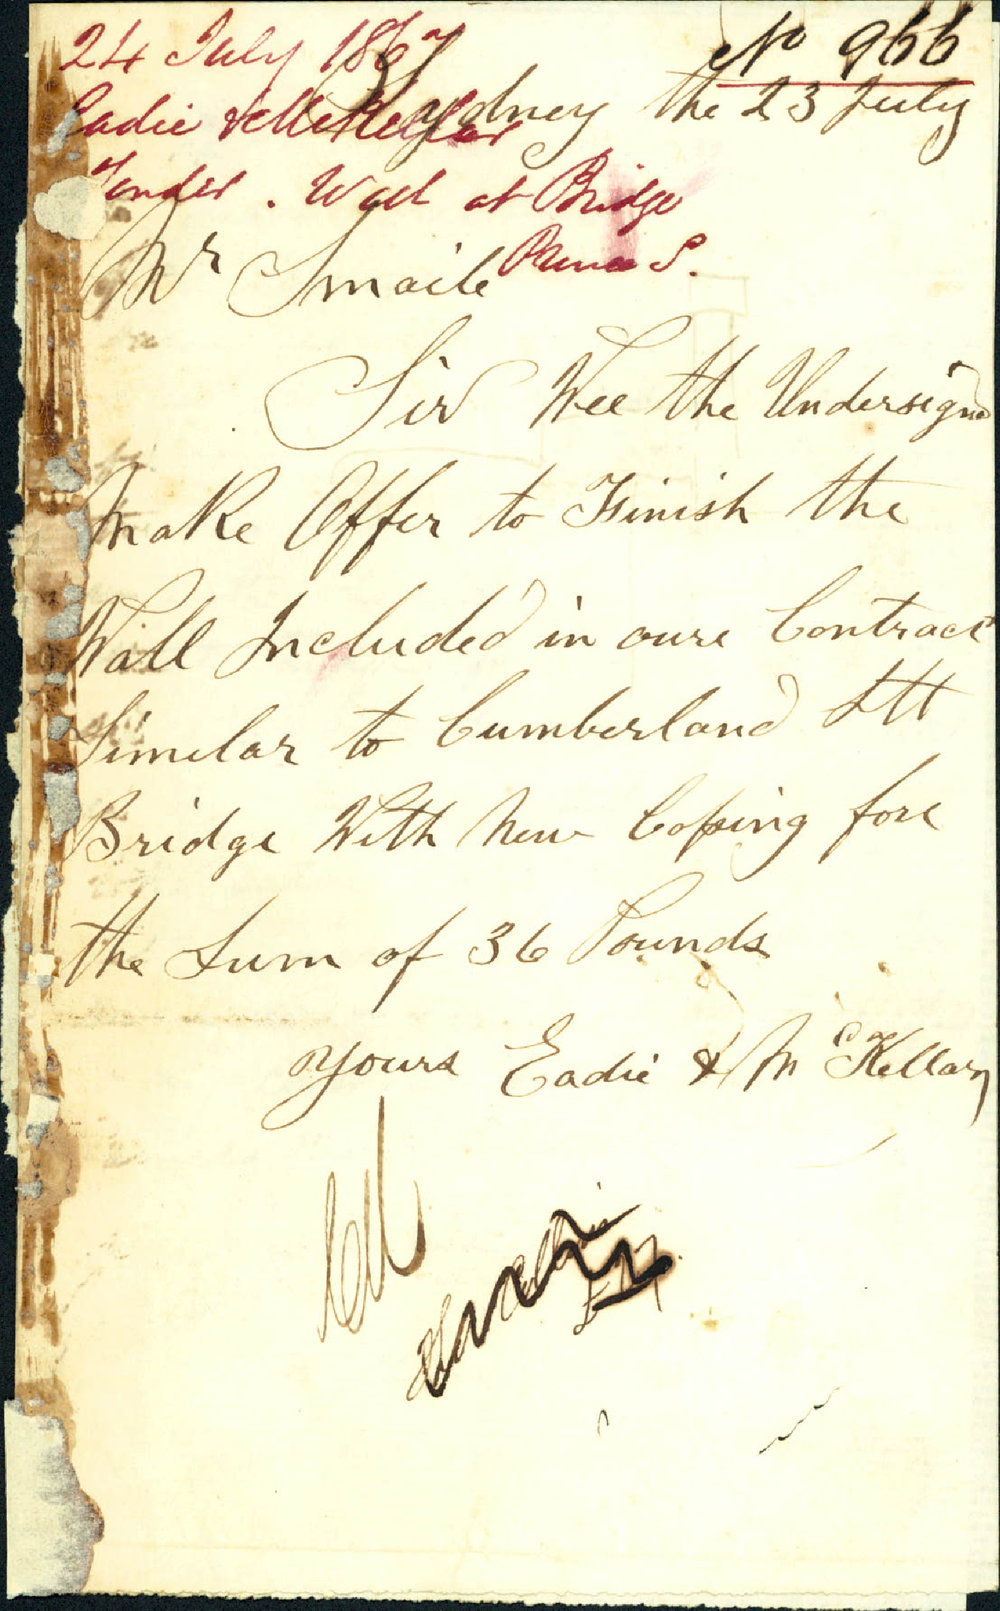 24 July 1867
No 966
Eadie & McKellar
Sydney the 23 July
Tender. Wall at Bridge
Mr Smaile
Sir Wee the Undersigned
Make Offer to Finish the
Wall Included in oure Contract
Similar to Cumberland Stt
Bridge With New Coping fore
the Sum of 36 Pounds
Yours Eadie & McKellar